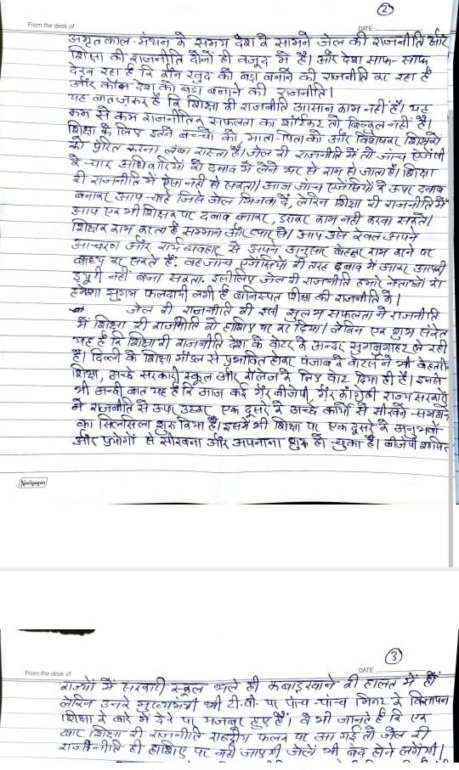 ②
From the desk of
DATE
अमृतकाल-मंथन के समय देश के सामने जेल की राजनीति और
शिक्षा की राजनीति दोनों ही वजूद में हैं। और देश साफ-साफ
देख रहा है कि कौन खुद को बड़ा बनाने की राजनीति कर रहा है
और कौन देश को बड़ा बनाने की राजनीति।
यह बात ज़रूर है कि शिक्षा की राजनीति आसान काम नहीं है। यह
कम से कम राजनीतिक सफलता का शॉर्टकट तो बिल्कुल नहीं है।
शिक्षा के लिए इतने बच्चों को माता-पिताओं और विशेषकर शिक्षकों
को प्रेरित करना लंबा रास्ता है। जेल की राजनीति में तो जांच एजेंसी
के चार अधिकारियों को दबाव में लेने भर से काम हो जाता है। शिक्षा
की राजनीति में ऐसा नहीं हो सकता। आज जांच एजेंसियों के ऊपर दबाव
बनाकर आप चाहे जिसे जेल भिजवा दें, लेकिन शिक्षा की राजनीति में
आप एक भी शिक्षक पर दबाव बनाकर, डराकर काम नहीं करवा सकते।
शिक्षक काम करता है सम्मान और प्यार से। आप उसे केवल अपने
आचरण और कार्य व्यवहार से अपने अनुसार बेहतर काम करने पर
बाध्य कर सकते हैं। वह जांच एजेंसियों की तरह दबाव में आकर आपकी
नहीं बना सकता। इसीलिए जेल की राजनीति हमारे नेताओं को
हमेशा सुगम फलदायी लगी है बनिस्पत शिक्षा की राजनीति के।
जेल की राजनीति की इसी सुलभ सफलता ने राजनीति
में शिक्षा की राजनीति को हाशिए पर कर दिया। लेकिन एक शुभ संकेत
यह है कि शिक्षा की राजनीति देश के वोटर के अन्दर सुगबुगाहट ले रही
है। दिल्ली के शिक्षा मॉडल से प्रभावित होकर पंजाब के वोटर्स ने भी बेहतर
शिक्षा, अच्छे सरकारी स्कूल और कॉलेज के लिए वोट दिया ही है। इससे
भी अच्छी बात यह है कि आज कई गैर बीजेपी, गैर कांग्रेसी राज्य सरकारों
ने राजनीति से ऊपर उठकर एक दूसरे के अच्छे कामों से सीखने-समझने
का सिलसिला शुरू किया है। इसमें भी शिक्षा पर एक दूसरे के अनुभवों
और प्रयोगों से सीखना और अपनाना शुरू हो चुका है। बीजेपी शासित
③
From the desk of
DATE
राज्यों में सरकारी स्कूल भले ही कबाड़खाने की हालत में हों
लेकिन उनके मुख्यमंत्री भी टी.वी. पर पांच-पांच मिनट के विज्ञापन
शिक्षा के बारे में देने पर मजबूर हुए हैं। वे भी जानते हैं कि एक
बार शिक्षा की राजनीति राष्ट्रीय फलक पर आ गई तो जेल की
राजनीति ही हाशिए पर नहीं जाएगी जेलें भी बंद होने लगेंगी।